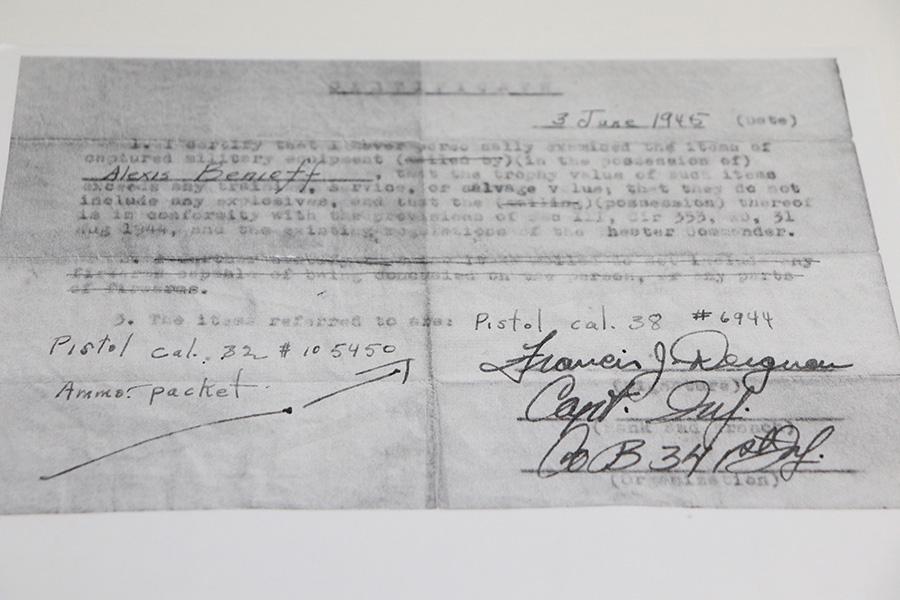 CERTIFICATE
3 June 1945 (Date)
1. I certify that I have personally examined the items of
captured military equipment (mailed by)(in the possession of)
Alexis Benieff, that the trophy value of such items
exceeds any training, service, or salvage value; that they do not
include any explosives, and that the (mailing)(possession) thereof
is in conformity with the provisions of Sec III, Cir 353, WD, 31
Aug 1944, and the existing regulations of the Theater Commander.
firearms capable of being concealed on the person, or any parts
of firearms.
3. The items referred to are: Pistol cal. 38 #6944
Pistol cal. 32 #105450
Ammo. packet
Francis J
(Signature)
Capt. Inf.
(Rank and Branch)
Co B 341st Inf.
(Organization)